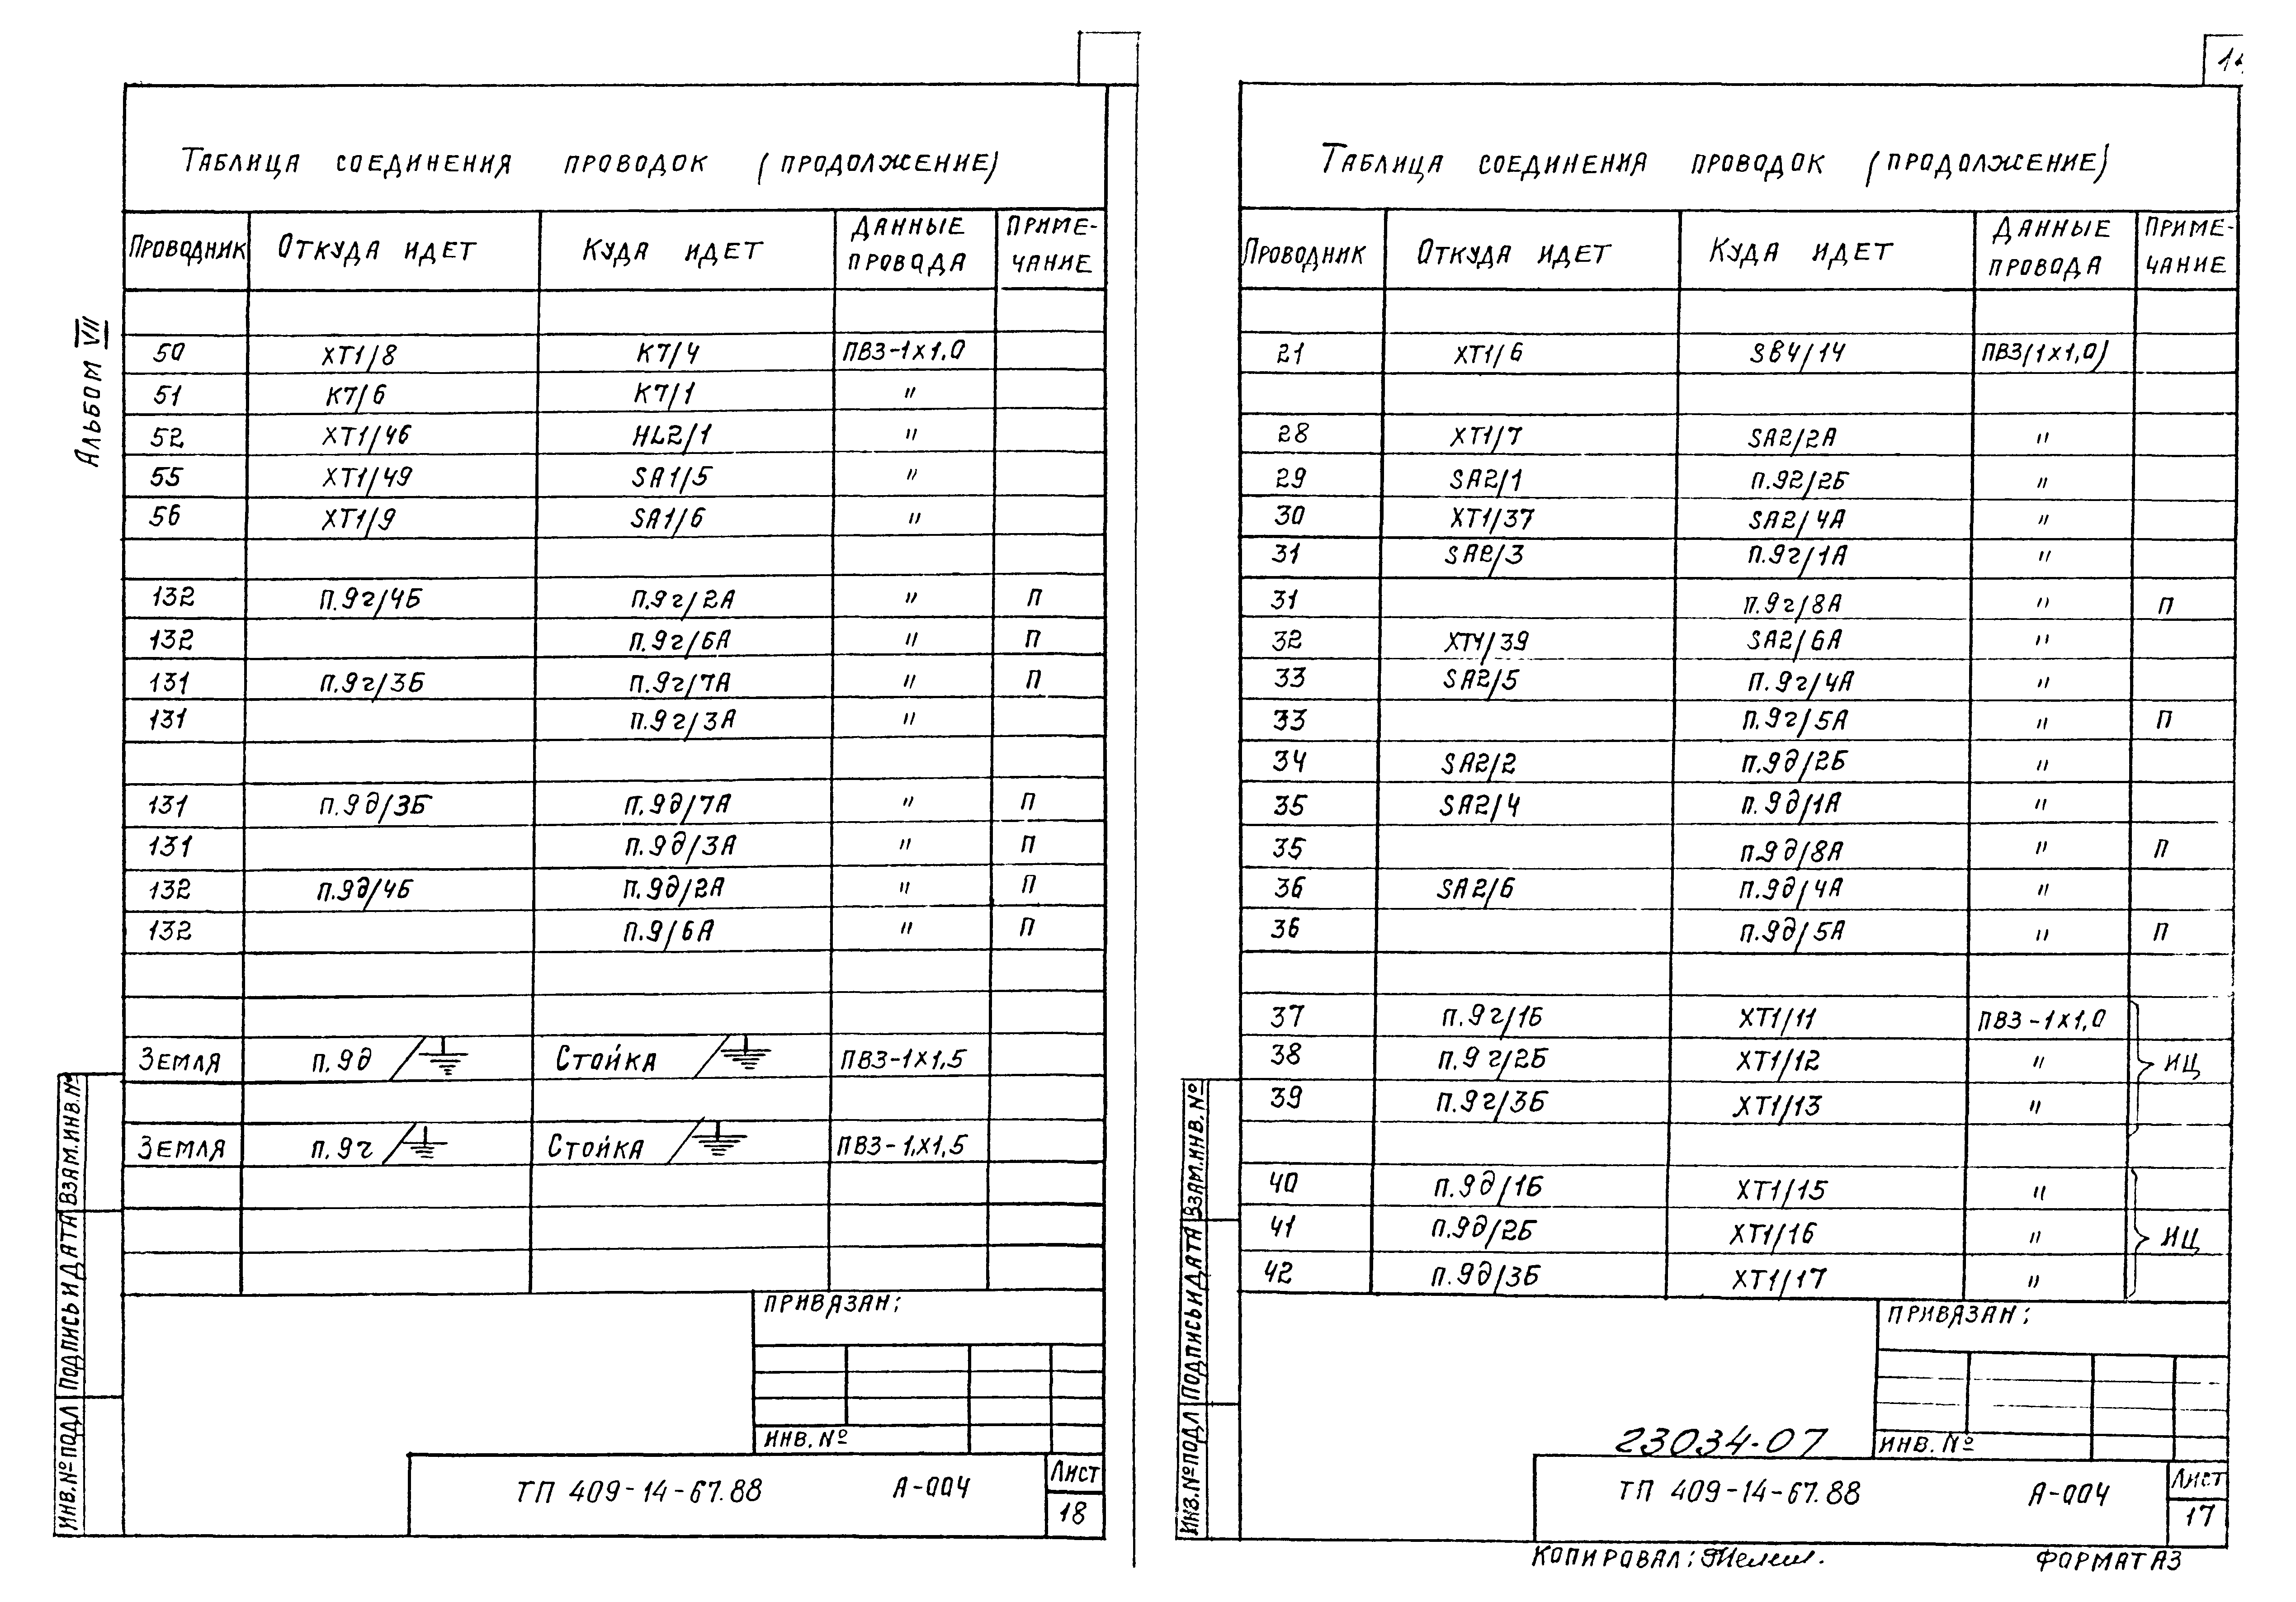 Альбом VII
Таблица соединения проводок (продолжение)
Проводник Откуда идет Куда идет Данные провода Приме-чание
50 XT1/8 K7/4 ПВ3-1х1,0
51 K7/6 K7/1 "
52 XT1/46 HL2/1 "
55 XT1/49 SA1/5 "
56 XT1/9 SA1/6 "
132 п.9г/4Б п.9г/2А " п
132 п.9г/6А " п
131 п.9г/3Б п.9г/7А " п
131 п.9г/3А "
131 п.9д/3Б п.9д/7А " п
131 п.9д/3А " п
132 п.9д/4Б п.9д/2А " п
132 п.9/6А " п
Земля п.9д/⏚ Стойка /⏚ ПВ3-1х1,5
Земля п.9г/⏚ Стойка /⏚ ПВ3-1,х1,5
Привязан:
Инв.№
ТП 409-14-67.88 А-004
Лист
18
Инв.№ подл Подпись и дата Взам.инв.№
Таблица соединения проводок (продолжение)
Проводник Откуда идет Куда идет Данные провода Приме-чание
21 XT1/6 SB4/14 ПВ3(1х1,0)
28 XT1/7 SA2/2А "
29 SA2/1 п.92/2Б "
30 XT1/37 SA2/4А "
31 SA2/3 п.9г/1А "
31 п.9г/8А " п
32 XT1/39 SA2/6А "
33 SA2/5 п.9г/4А "
33 п.9г/5А " п
34 SA2/2 п.9д/2Б "
35 SA2/4 п.9д/1А "
35 п.9д/8А " п
36 SA2/6 п.9д/4А "
36 п.9д/5А " п
37 п.9г/1Б XT1/11 ПВ3-1х1,0
38 п.9г/2Б XT1/12 " ИЦ
39 п.9г/3Б XT1/13 "
40 п.9д/1Б XT1/15 "
41 п.9д/2Б XT1/16 " ИЦ
42 п.9д/3Б XT1/17 "
Привязан:
Инв.№
23034-07
ТП 409-14-67.88 А-004
Лист
17
Инв.№ подл Подпись и дата Взам.инв.№
Копировал:
Формат А3